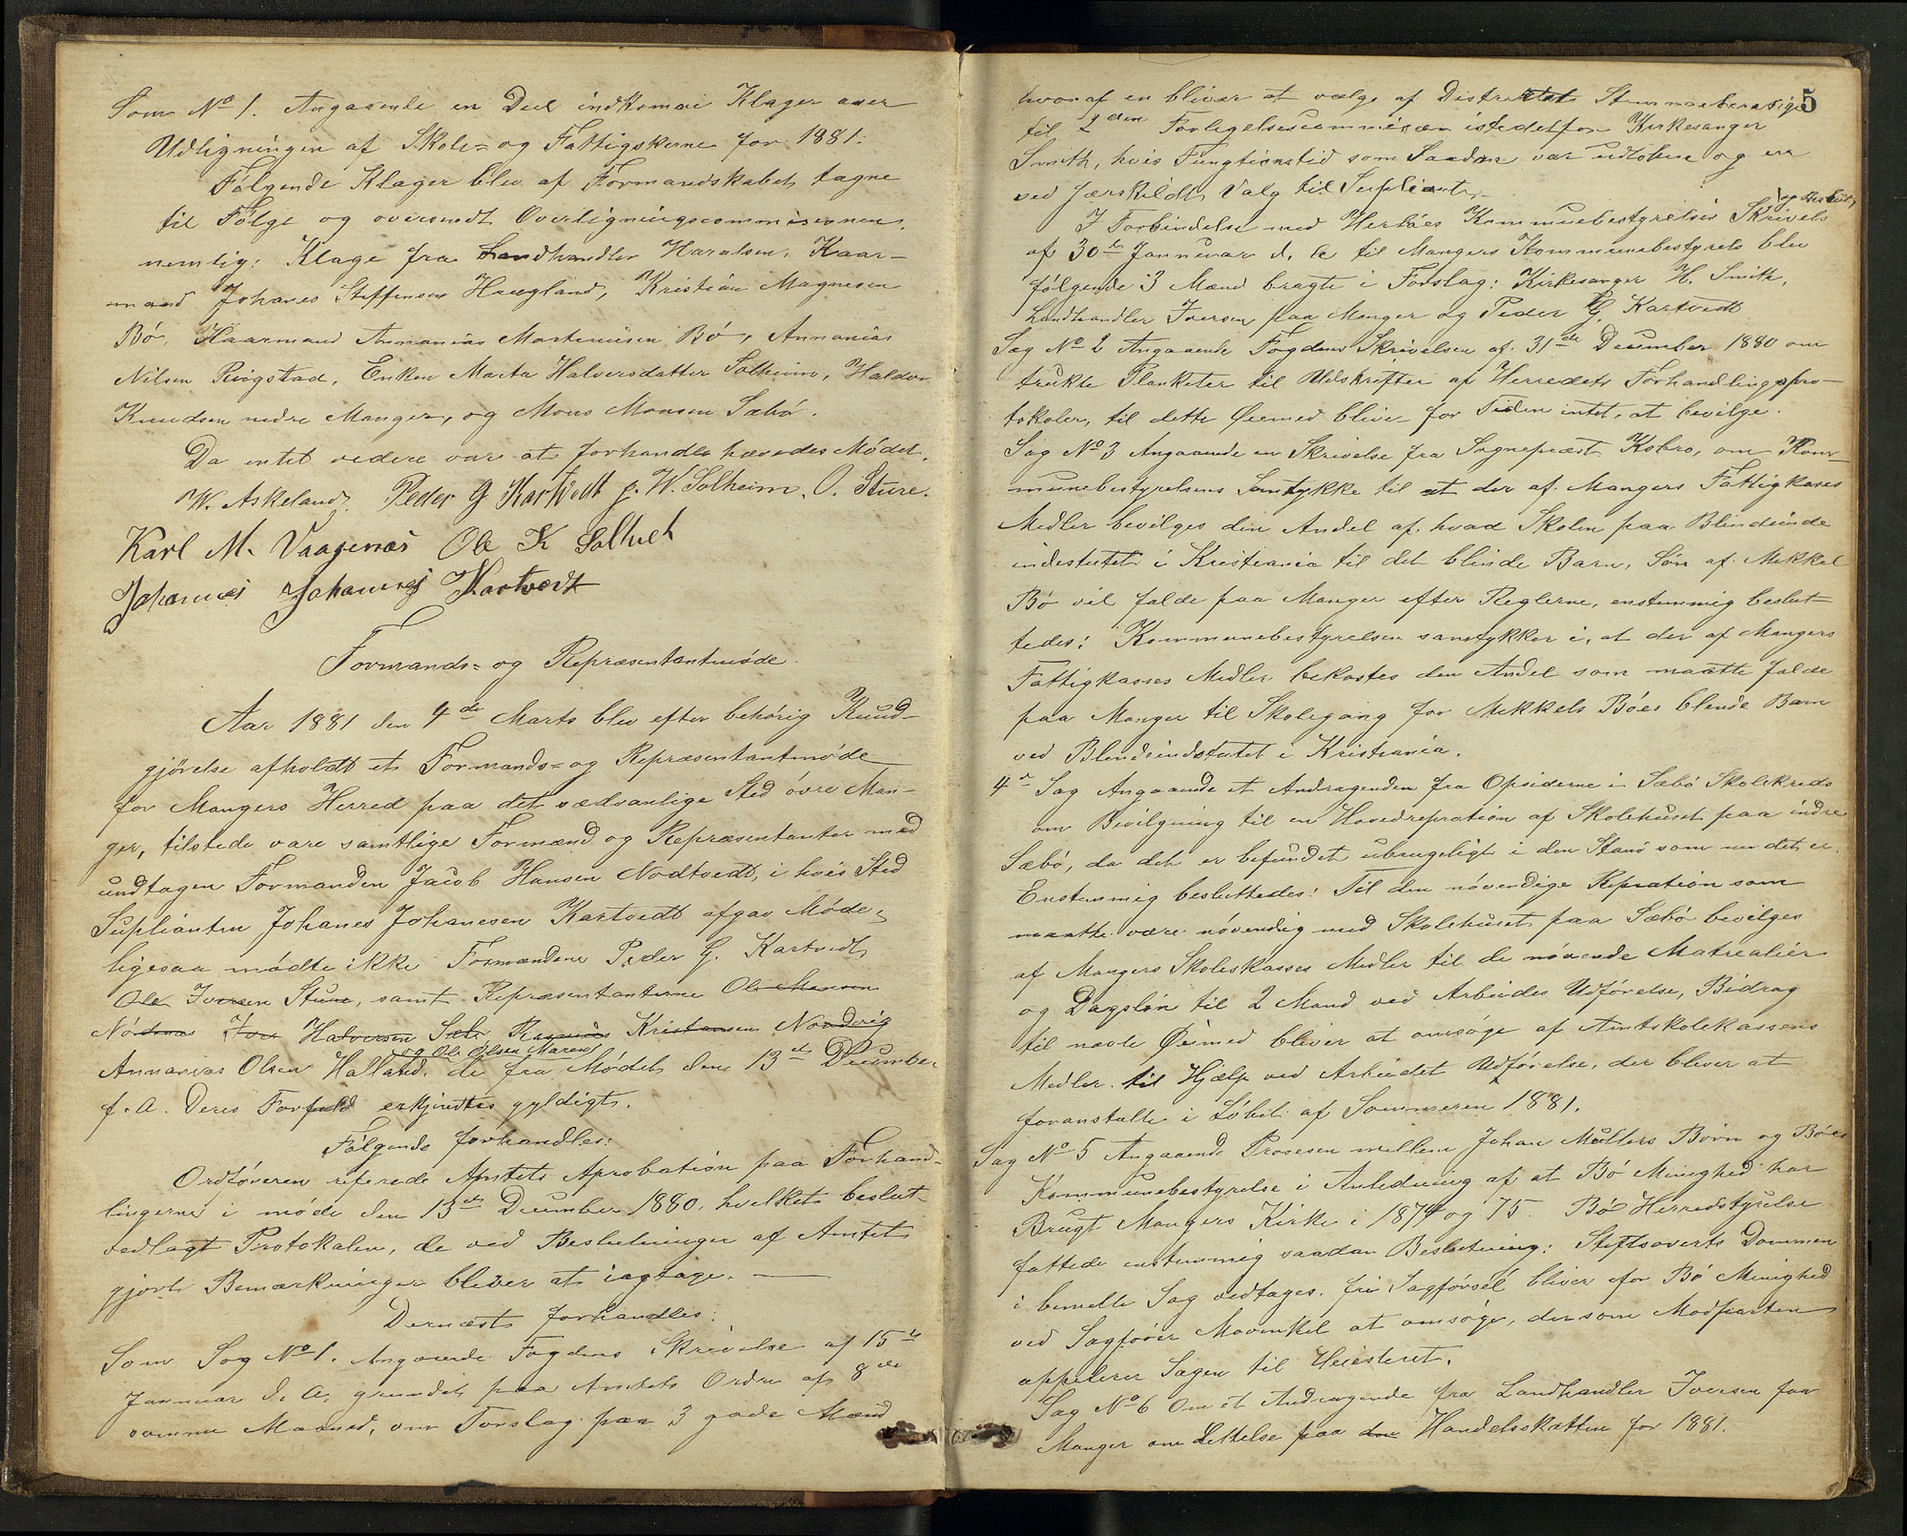 Som No 1. Angaaende en Deel indkomne Klager over
Udligningen af Skole- og Fattigskerne for 1881.
Følgende Klager blev af Formandskabet tagne
til Følge og oversendt Overligningscommisionen,
nemlig: Klage fra Landhandler Haralsen, Kaar-
mand Johanes Steffensen Haugland, Kristian Magnesen
Bø, Kaarmand Ananias Martinusen Bø, Annanias
Nilsen Ringstad, Enken Marta Halversdatter Solheim, Haldor
Knudsen nedre Manger, og Mons Monsen Sæbø.
Da intet videre var at forhandle hævedes Mødet.
W. Askeland. Peder G Kartvedt J. W. Solheim. O. Sture.
Karl M. Vaagenæs Ole K Soltvet
Johannes Johannesj Kartvedt
Formands- og Repræsentantmøde.
Aar 1881 den 4de Marts blev efter behørig Kund-
gjørelse afholdt et Formands- og Repræsentantmøde
for Mangers Herred paa det sædvanlige Sted øvre Man-
ger, tilstede vare samtlige Formænd og Repræsentanter med
undtagen Formanden Jacob Hansen Nodtvedt, i hvis Sted
Suplianten Johanes Johanesen Kartvedt afgav Møde,
ligesaa mødte ikke Formændene Peder G. Kartvedt,
Ole Iversen Sture, samt Repræsentanterne Ole Monson
Halversen Sæbø Rasmus Kristansen Nordvig
og Ole Olsen Maren
Annanias Olsen Halland, de fra Mødet den 13de December
f. A. Deres Forfald erkjendtes gyldigt.
Følgende forhandles:
Ordføreren referede Amtets Aprobation paa Forhand-
lingerne i møde den 13de December 1880, hvilket beslut-
vedlagt Protokolen, de ved Beslutninger af Amtet
gjorte Bemærkninger bliver at iagtage.
Dernæst forhandles:
Som Sag No 1. Angaaende Fogdens Skrivelse af 15de
Januar d. A. grundet paa Amtets Ordre af 8de
samme Maaned, om Forslag paa 3 gode Mænd
5
hvoraf en bliver at vælge af Distriktet Stemmeberetige
til 2den Forligelsescommisær istedetfor Kirkesanger
Smith, hvis Fungtionstid som Saadan var udløben og en
ved særskildt Valg til Supliant.
og Beslut
I Forbindelse med Herløes Kommunebestyrelses Skrivels
af 30te Jannuar d. A. til Mangers Kommunebestyrels blev
følgende 3 Mænd bragte i Forslag: Kirkesanger H. Smith,
Landhandler Iversen paa Manger og Peder G Kartvedt
Sag No 2 Angaaende Fogdens Skrivelsen af 31de December 1880 om
trykte Blanketer til Udskrifter af Herredets Forhandlingspro-
tokoler, til dette Øiemed blive for Tiden intet at bevilge.
Sag No 3 Angaaende en Skrivelse fra Sognepræst Kobro, om Kom-
munebestyrelsens Samtykke til at der af Mangers Fattigkasses
Midler bevilges den Andel af hvad Skolen paa Blindeinde
indestutet i Kristiania til det blinde Barn, Søn af Mikkel
Bø vil falde paa Manger efter Reglerne, enstemmig beslut-
tedes: Kommunebestyrelsen samtykker i, at der af Mangers
Fattigkasses Midler bekostes den Andel som maatte falde
paa Manger til Skolegang for Mikkels Bøes blinde Barn
ved Blindeindstutet i Kristiania.
4de Sag Angaaende et Andragenden fra Opsiderne i Sæbø Skolekreds
om Bevilgning til en Hovedrepration af Skolehuset paa indre
Sæbø, da det er befundet ubrugeligt i den Stand som nu det er.
Enstemmig besluttedes: Til den nøvendige Repration som
maatte være nøvendig med Skolehuset paa Sæbø bevilges
af Mangers Skolekasses Midler til de nøvende Matrealier
og Dagsløn til 2 Mand ved Arbeides Udførelse, Bidrag
til nævte Øiemed bliver at omsøge af Amtskolekassens
Midler til Hjælp ved Arbeidet Udførelse, der bliver at
foranstalte i Løbet af Sommeren 1881.
Sag No 5 Angaaende Prosesen mellem Johan Müllers Børn og Bøes
Kommunebestyrelse i Anledning af at Bø Minighed har
Brugt Mangers Kirke i 1874 og 75. Bøs Herredstyrelse
fattede enstemmig saadan Beslutning: Stiftsoverts Dommen
i bemelte Sag vedtages. fri Sagførsel bliver for Bø Minighed
ved Sagfører Mowinkel at omsøge, dersom Modparten
appelerer Sagen til Heiesteret.
Sag No 6 Om et Andragende fra Landhandler Iversen paa
Manger om Lettelse paa den Handelsskatten for 1881.